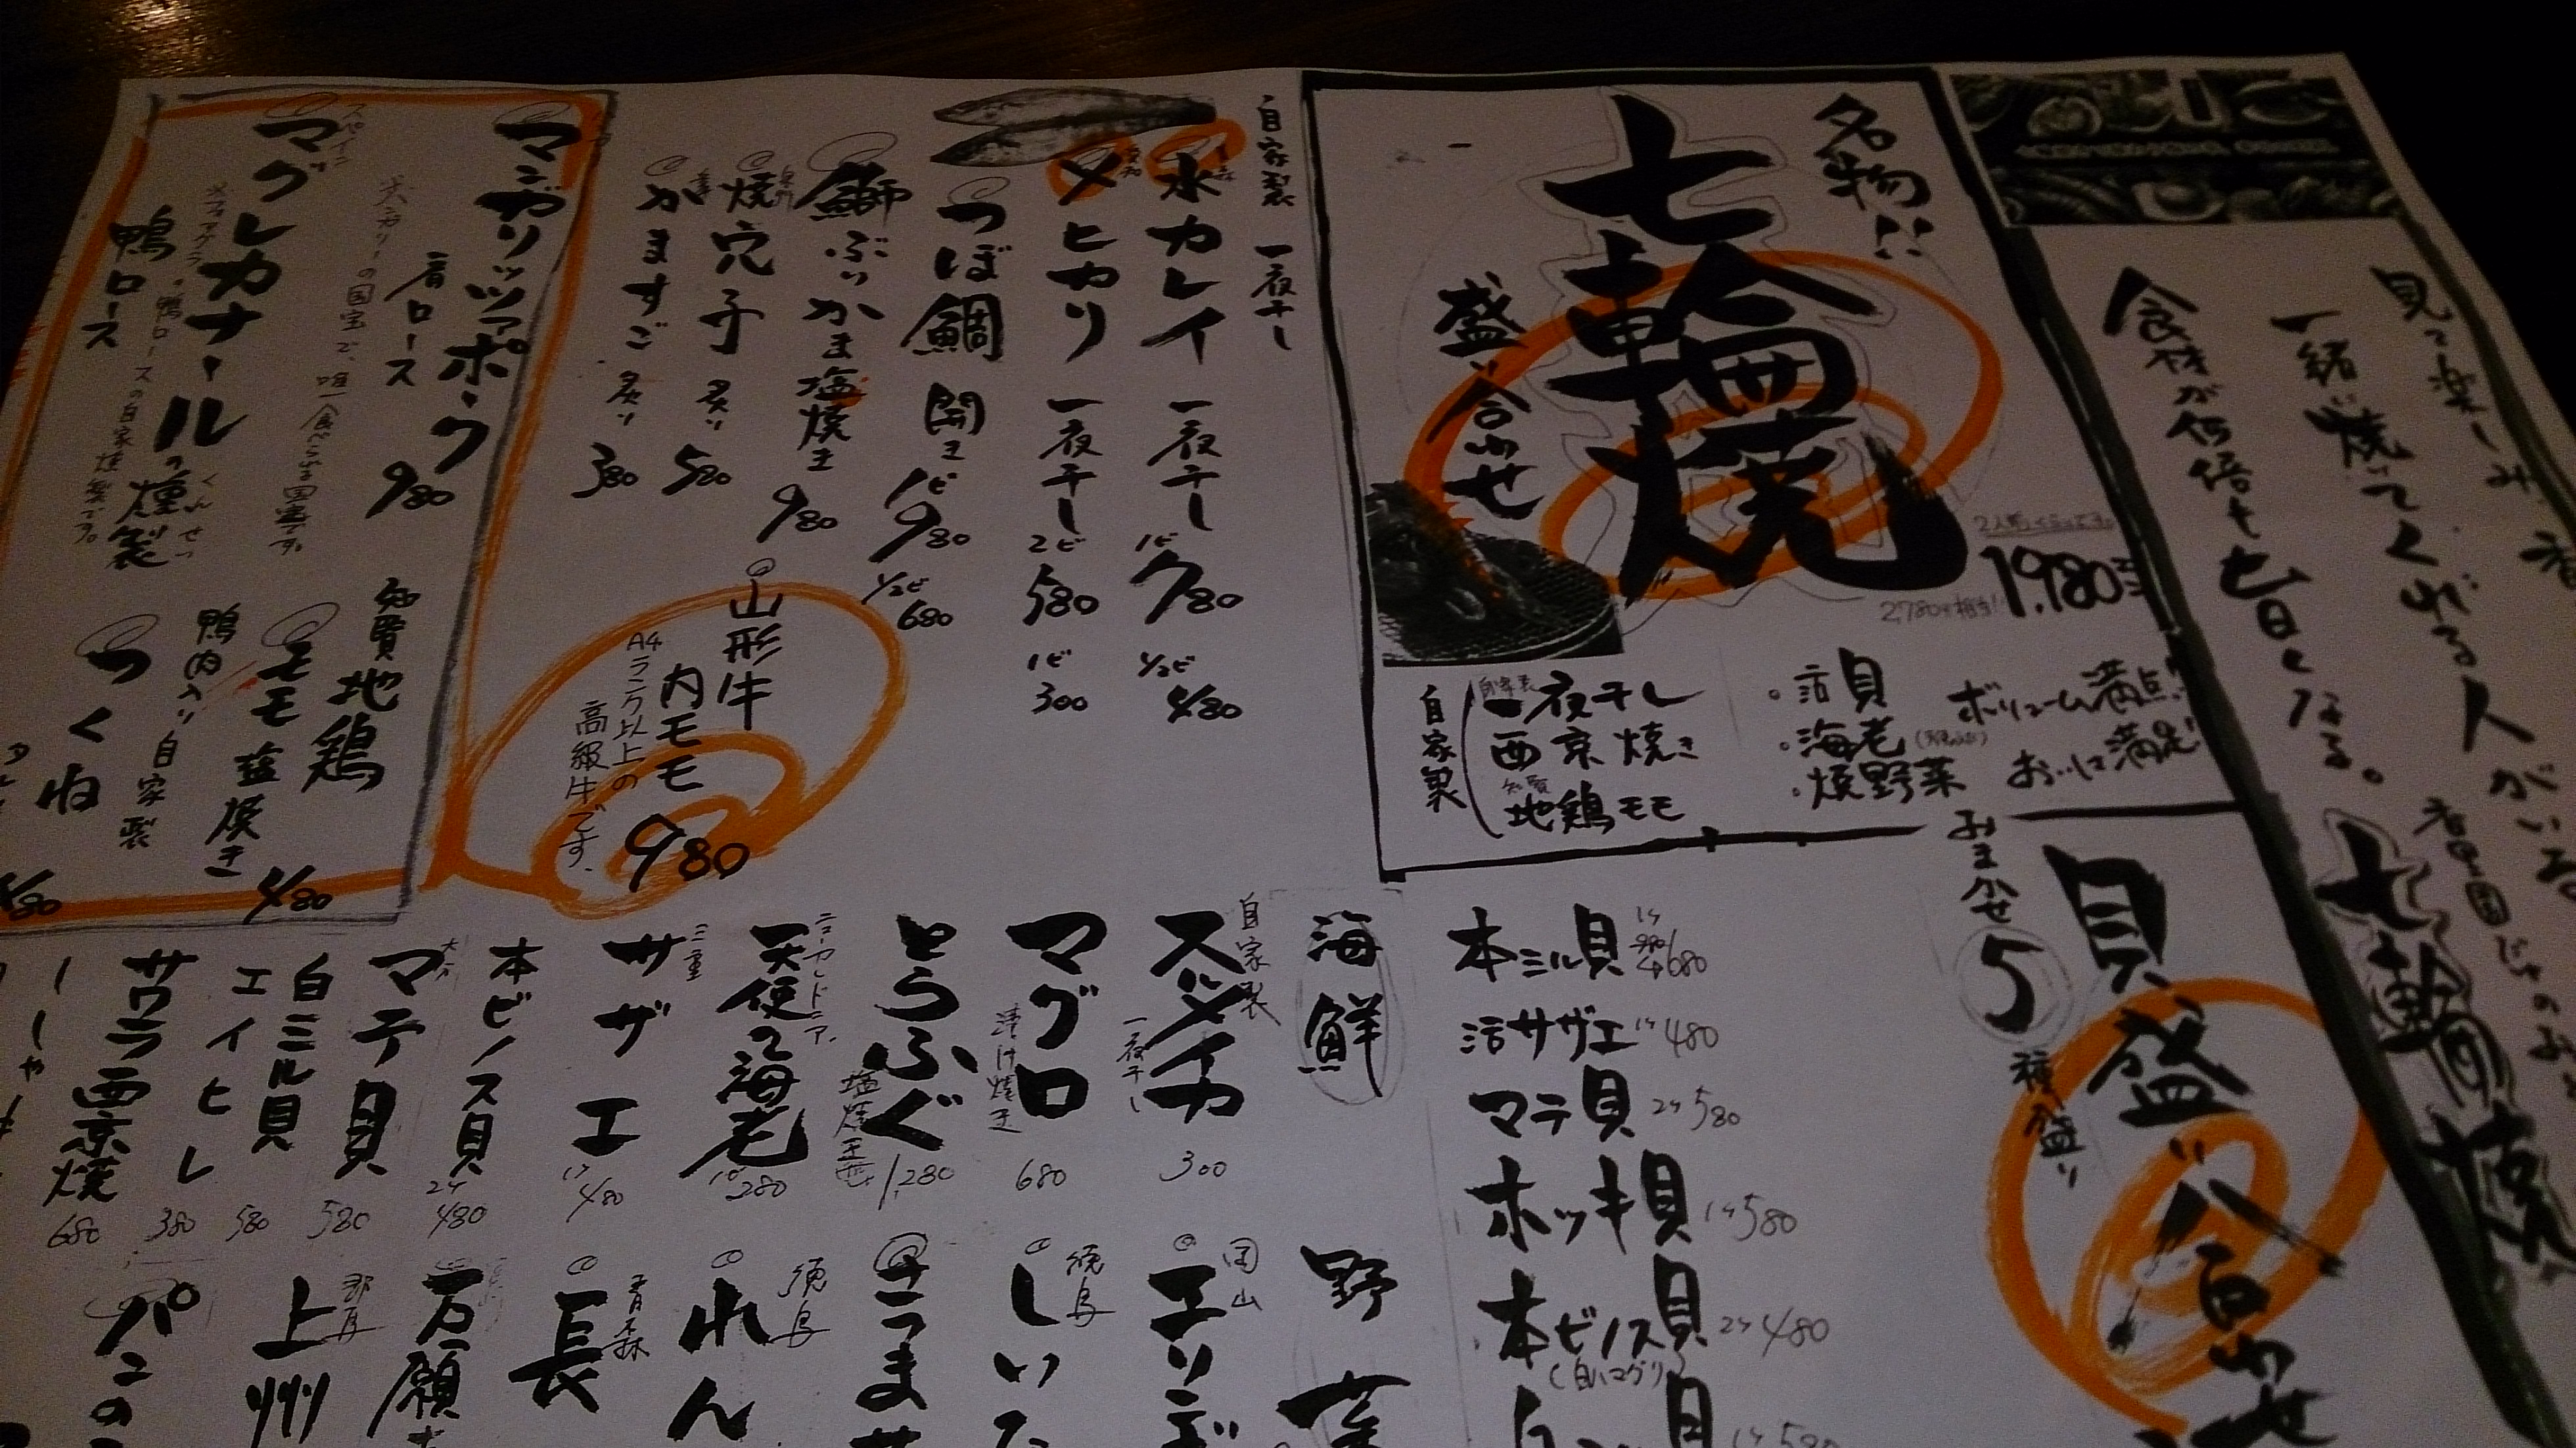 見て楽しみ
一緒に焼いてくれる人がいる
食材が何倍も旨くなる。
七輪焼
名物!!
七輪焼
盛り合わせ
1,980
2,780円相当
自家製
一夜干し
西京焼き
知覧
地鶏モモ
・活貝
・海老
・焼野菜
ボリューム満点!!
おいしさ満足!
貝盛り合わせ
おまかせ
5
種盛り
本ミル貝 680
活サザエ 480
マテ貝 580
ホッキ貝 580
本ビノス貝 480
(白ハマグリ)
自家製 一夜干し
水カレイ 一夜干し 780 480
メヒカリ 一夜干し 2ビ 580 1ビ 300
つぼ鯛 開き 980 680
鰤ぶりかま塩焼き 980
焼穴子 炙り 580
かますご 炙り 380
山形牛
内モモ
980
A4ランク以上の
高級牛です。
マンガリッツァポーク
肩ロース 980
ハンガリーの国宝で、唯一食べられる国宝です。
スペイン
マグレカナールの燻製
くんせい
鴨ロース
鴨ロースの自家燻製です。
知覧地鶏
モモ塩焼き 480
鴨肉入り自家製
つくね 480
海鮮
自家製
スルメイカ
一夜干し
300
マグロ
漬け焼き
680
とらふぐ
1,280
ニューカレドニア
天使の海老
280
三重
サザエ
480
本ビノス貝
480
マテ貝
580
白ミル貝
580
エイヒレ
380
サワラ西京焼
680
野菜
岡山
エリンギ
徳島
しいた
さつま
徳島
れん
青森
長
万願
群馬
上州